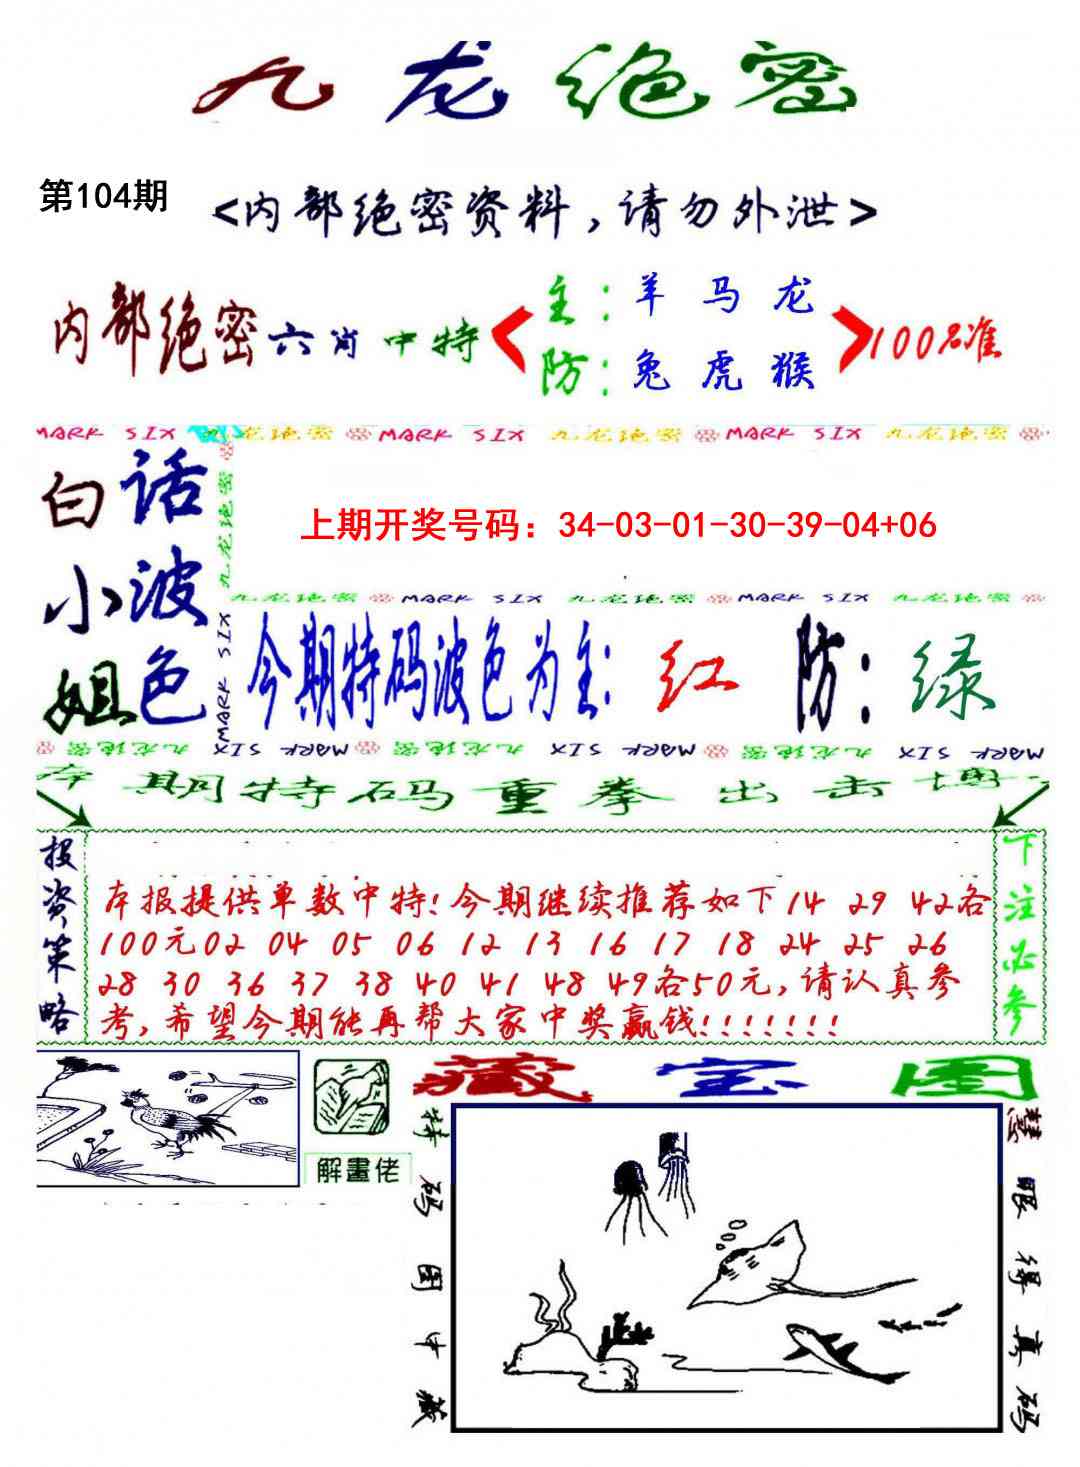 九龙绝密
第104期
<内部绝密资料,请勿外泄>
内部绝密六肖中特
主:羊 马 龙
防:兔 虎 猴
100%准
MARK SIX 九龙绝密 MARK SIX 九龙绝密 MARK SIX 九龙绝密
白话
小波
姐色
九龙绝密
MARK SIX
上期开奖号码：34-03-01-30-39-04+06
九龙绝密 MARK SIX 九龙绝密 MARK SIX 九龙绝密
今期特码波色为主:红 防:绿
九龙绝密 MARK SIX 九龙绝密 MARK SIX 九龙绝密 MARK SIX
本期特码重拳出击博
投资策略
本报提供单数中特!今期继续推荐如下14 29 42各
100元02 04 05 06 12 13 16 17 18 24 25 26
28 30 36 37 38 40 41 48 49各50元,请认真参
考,希望今期能再帮大家中奖赢钱!!!!!!!
下注必参
解畫佬
藏宝图
特码图中藏
慧眼得真码